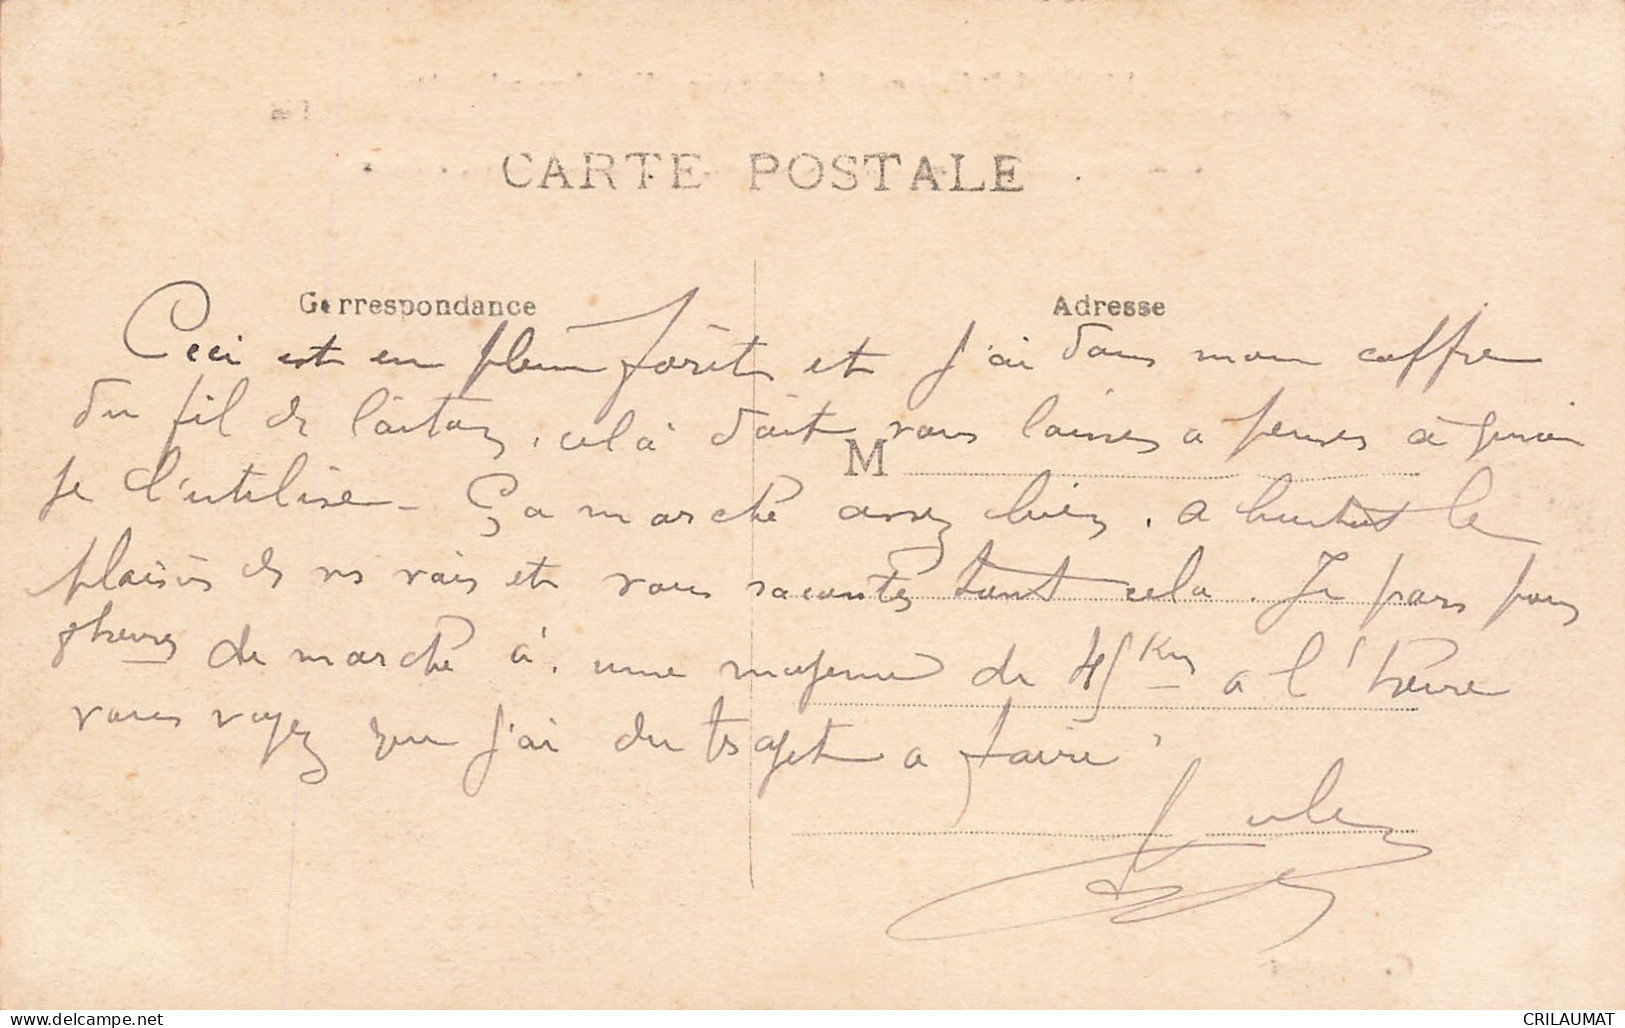 CARTE POSTALE
Correspondance
Adresse
M
Ceci est en plein forêt et j'ai dans mon coffre
du fil de laiton, celà doit vous laisser a penser à quoi
je l'utilise - Ça marche assez bien. a bientot le
plaisir de vs voir et vous raconter tout cela. Je pars pour
8 heures de marche à une moyenne de 45 Km a l'heure
vous voyez que j'ai du trajet a faire
Jules
www.delcampe.net
CRILAUMAT